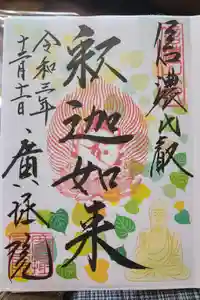 信濃比叡
釈迦如来
令和三年
十二月十二日
廣拯院